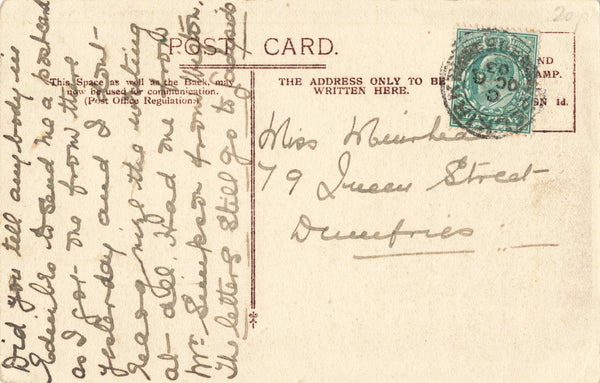 POST CARD.
This Space as well as the Back, may
now be used for communication.
(Post Office Regulation.)
THE ADDRESS ONLY TO BE
WRITTEN HERE.
ND
AMP.
GN 1d.
20p
Miss Muirhead
79 Queen Street
Dumfries
Did you tell anybody in
Edinbro to send me a postcard
as I got one from there
yesterday and I cont
recognize the writing
at all. Had one from
Mr. Simpson from
The letters still go to